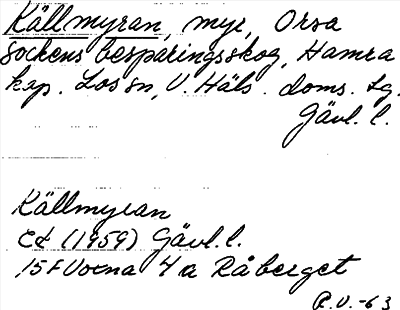 Källmyran, myr, Orsa
sockens besparingsskog, Hamra
kap. Los sn, V. Häls. doms. sg.
Gävl. l.
Källmyran
Ed (1959) Gävl. l.
15F Voxna 4 a Råberget
R.V. -63